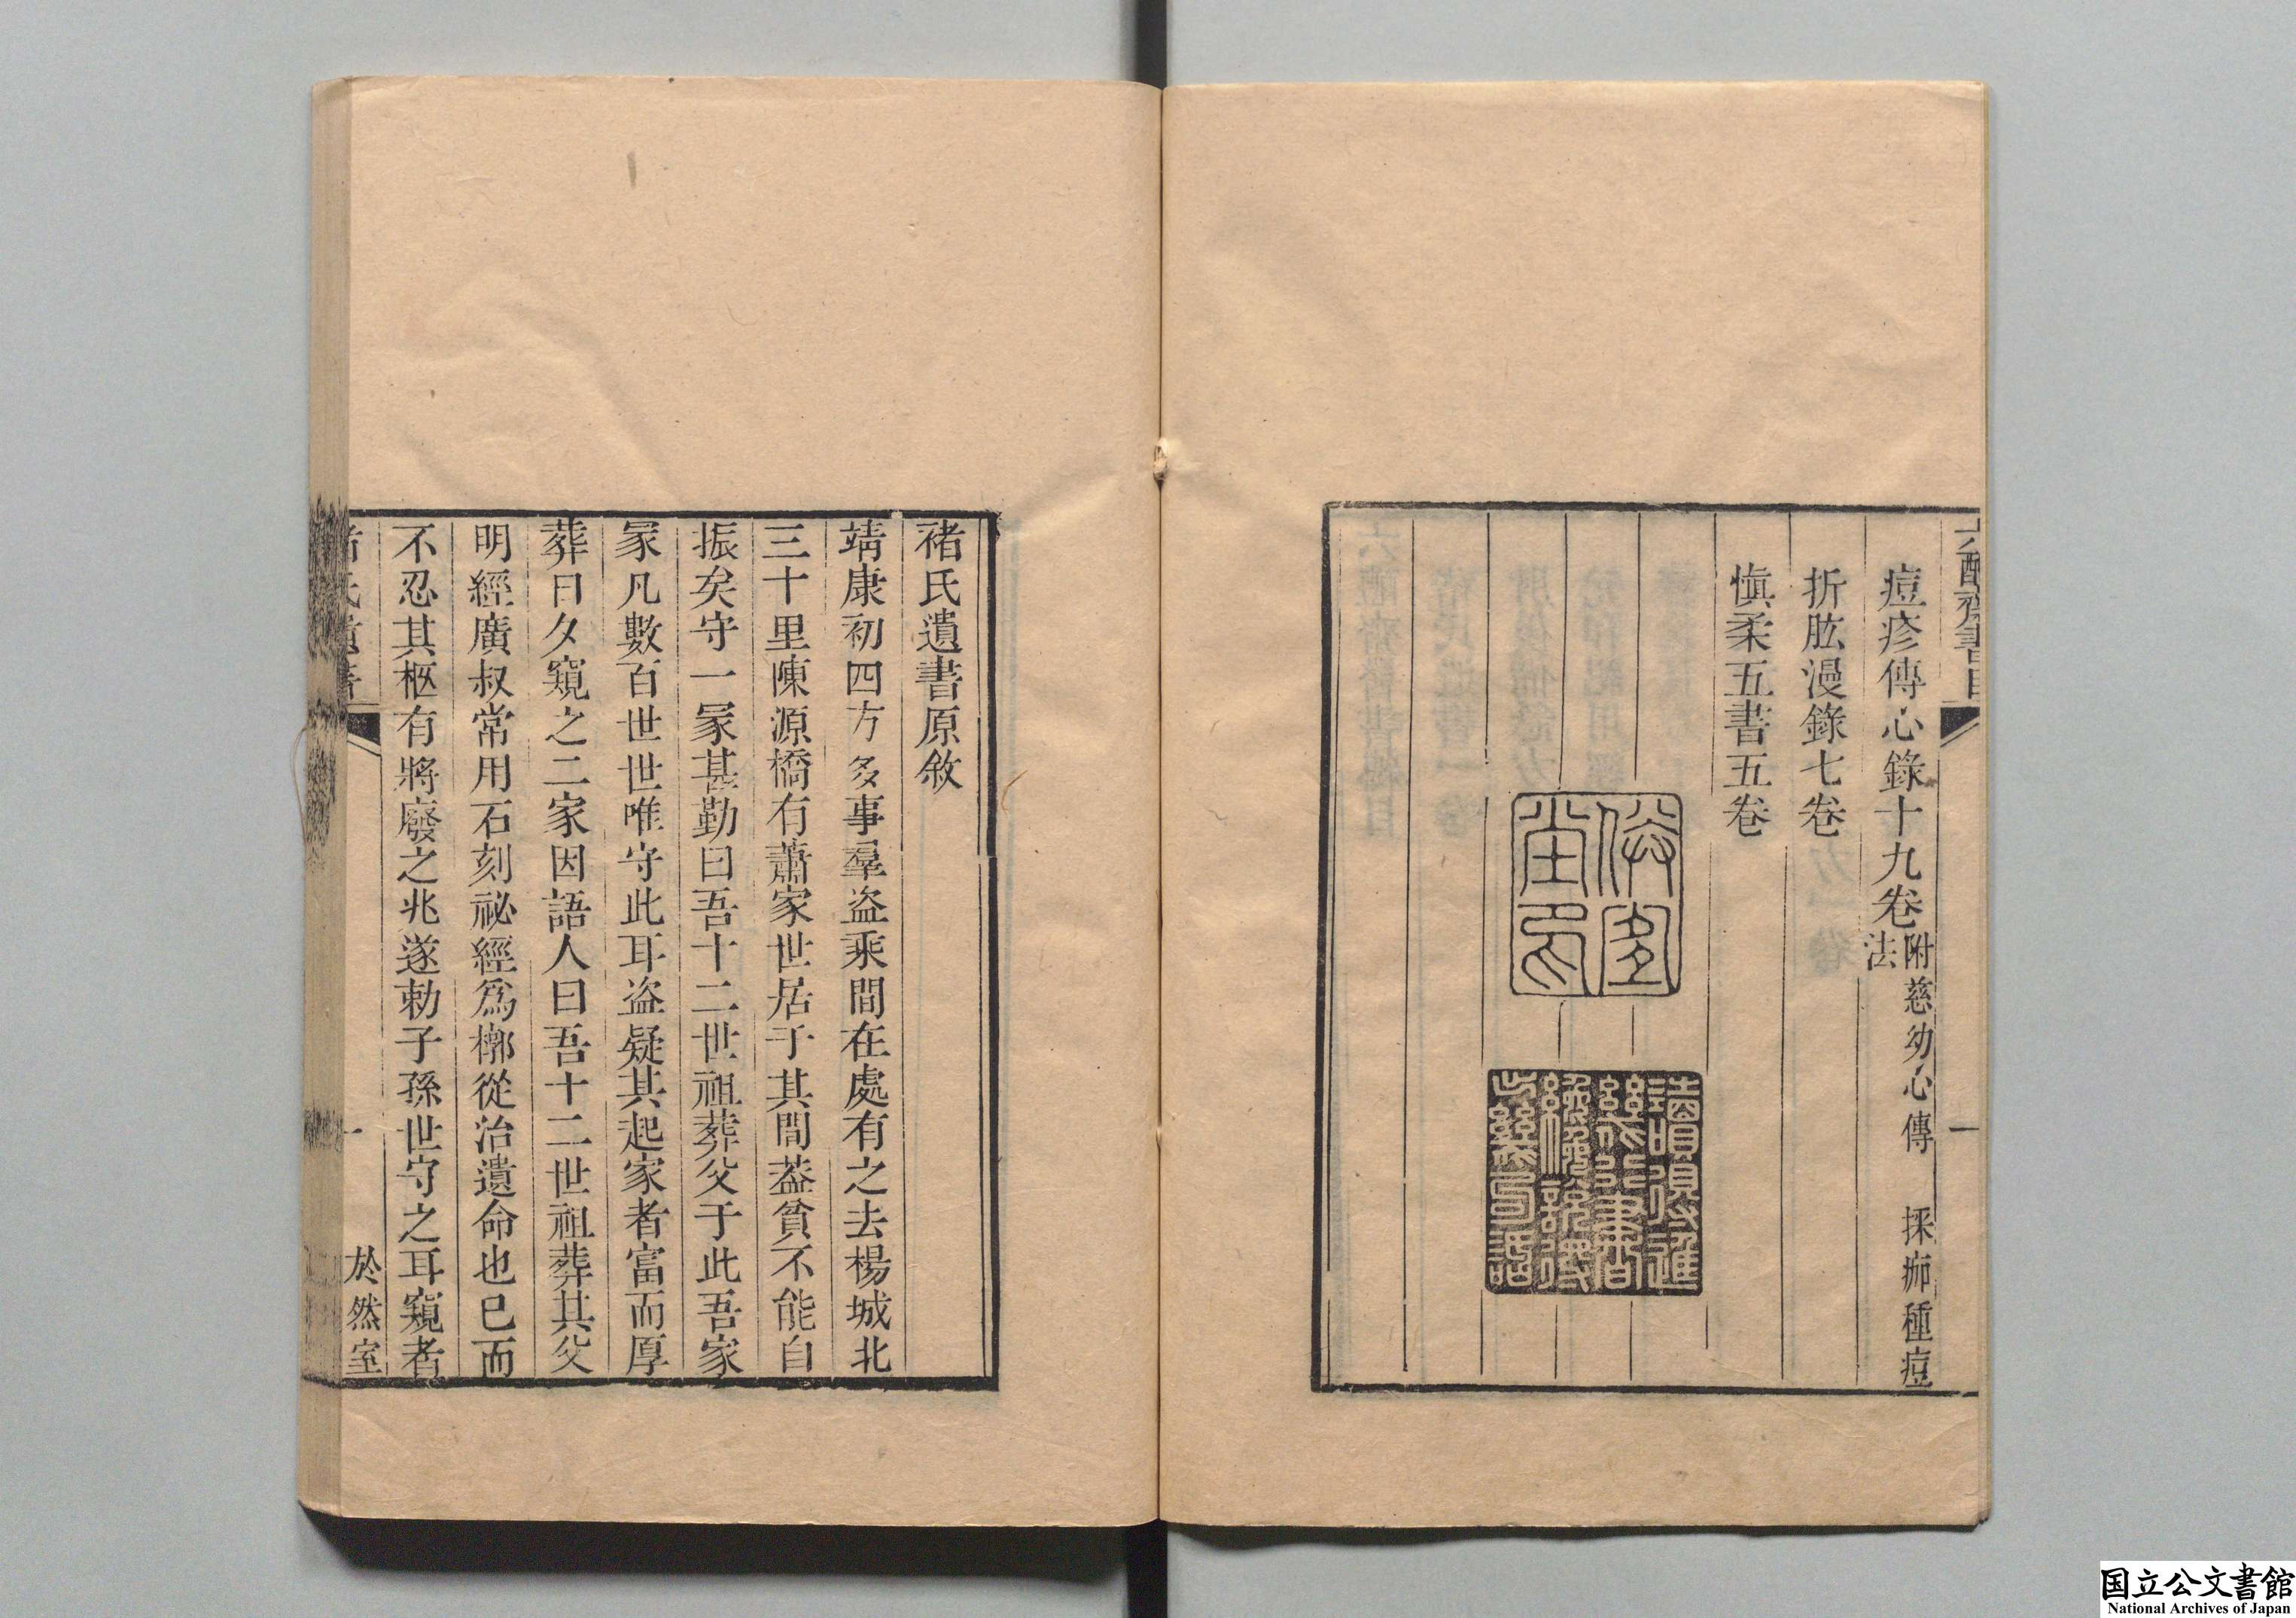 六醴齋書目
痘疹傳心錄十九卷附慈幼心傳 採痲種痘法
折肱漫錄七卷
愼柔五書五卷
一
褚氏遺書原敘
靖康初四方多事羣盗乘間在處有之去楊城北
三十里陳源橋有蕭家世居于其間葢貧不能自
振矣守一冡甚勤曰吾十二世祖葬父于此吾家
冡凡數百世世唯守此耳盗疑其起家者富而厚
葬日夕窺之二家因語人曰吾十二世祖葬其父
明經廣叔常用石刻祕經爲槨從治遺命也已而
不忍其柩有將廢之兆遂勅子孫世守之耳窺者
褚氏遺書
一
於然室
国立公文書館
National Archives of Japan